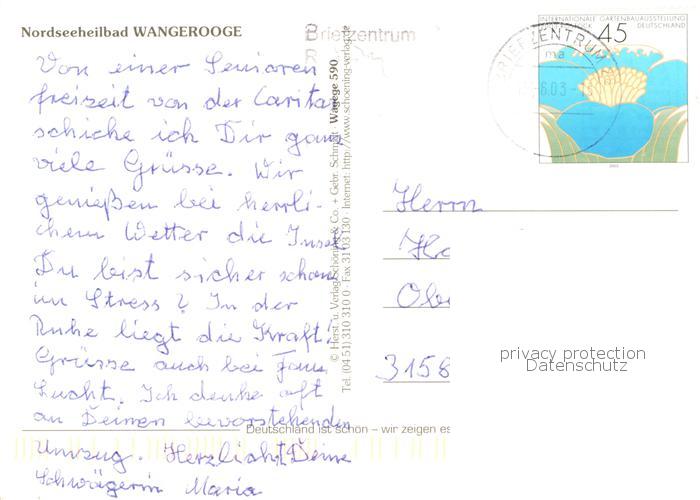 Nordseeheilbad WANGEROOGE
Briefzentrum
INTERNATIONALE GARTENBAUAUSSTELLUNG
DEUTSCHLAND
45
BRIEFZENTRUM
ma
6.03
2003
Von einer Senioren
freizeit von der Caritas
schicke ich Dir ganz
viele Grüsse. Wir
genießen bei herrli-
chem Wetter die Insel
Du bist sicher schon
im Stress? In der
Ruhe liegt die Kraft!
Grüsse auch bei
Lucht. Ich denke oft
an Deinen bevorstehenden
Umzug. Herzlichst Deine
Schwägerin Maria
© Herst. u. Verlag Schöning & Co. + Gebr. Schmidt · Wagege 590
Tel. (04 51) 310 310 0 · Fax 31 03 130 · Internet: http://www.schoening-verlag.de
Herrn
Ha
Obe
3158
privacy protection
Datenschutz
Deutschland ist schön – wir zeigen es